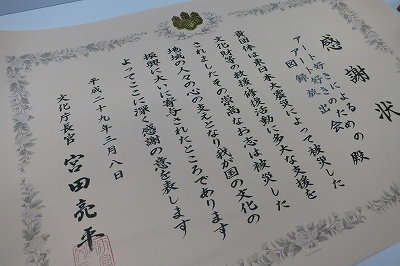 感謝状
アート好きによる
アート好きのための
図録放出会 殿
貴団体は東日本大震災によって被災した
文化財等の救援修復活動に多大な支援を
されましたその崇高なお志は被災した
地域の人々の心の支えとなり我が国の文化の
振興に大いに寄与されたところであります
よってここに深く感謝の意を表します
平成二十九年三月八日
文化庁長官 宮田亮平